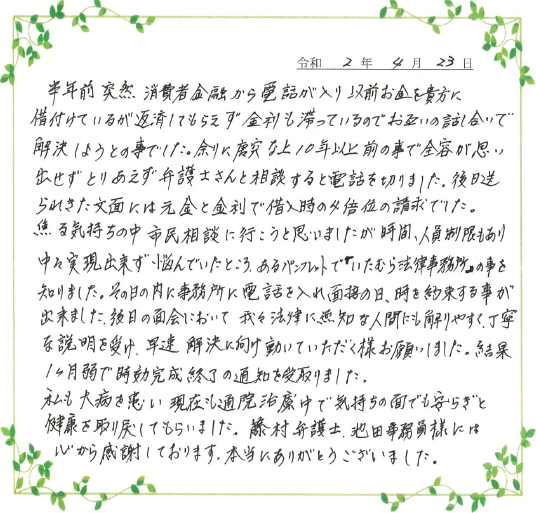 令和 2 年 4 月 23 日
半年前突然 消費者金融から電話が入り以前お金を貴方に
借付けているが返済してもらえず金利も滞っているのでお互いの話し合いで
解決しようとの事でした。余りに唐突な上10年以上前の事で全容が思い
出せずとりあえず弁護士さんと相談すると電話を切りました。後日送
られきた文面には元金と金利で借入時の4倍位の請求でした。
焦る気持ちの中 市民相談に行こうと思いましたが時間、人員制限もあり
中々実現出来ず悩んでいたところ、あるパンフレットで「いたむら法律事務所」の事を
知りました。その日の内に事務所に電話を入れ面接の日、時を約束する事が
出来ました。後日の面会において 我々法律に無知な人間にも解りやすく、丁寧
な説明を受け、早速 解決に向け動いていただく様お願いしました。結果
1ヶ月弱で時効完成終了の通知を受取りました。
私も大病を患い 現在も通院治療中で気持ちの面でも安らぎと
健康を取り戻してもらいました。藤村弁護士、池田事務員様には
心から感謝しております。本当にありがとうございました。